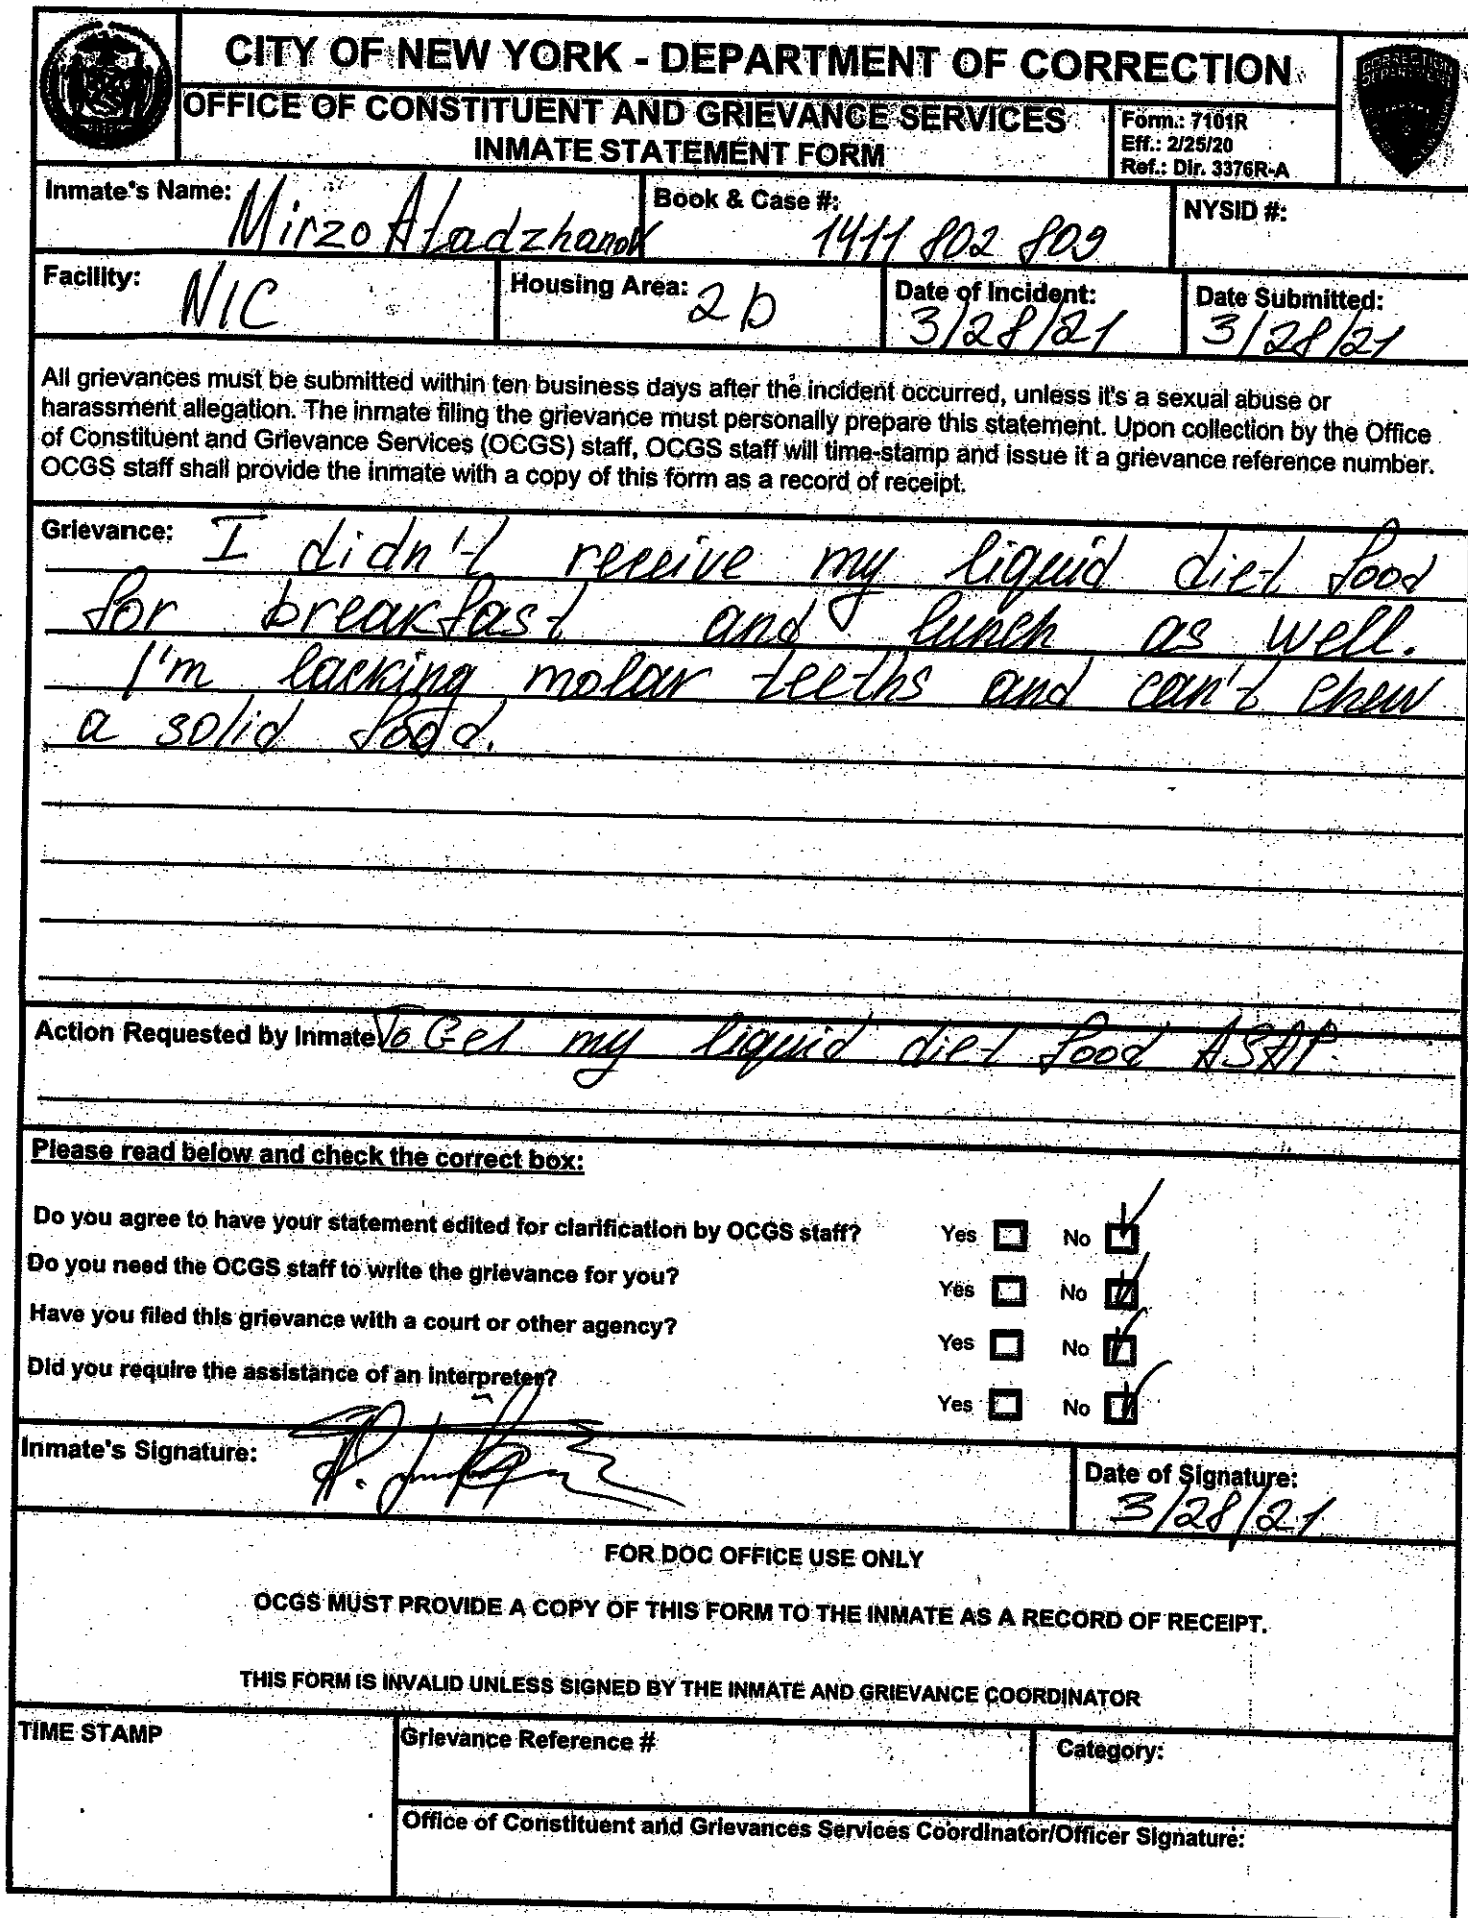 CITY OF NEW YORK - DEPARTMENT OF CORRECTION
OFFICE OF CONSTITUENT AND GRIEVANCE SERVICES
INMATE STATEMENT FORM
Form.: 7101R
Eff.: 2/25/20
Ref.: Dir. 3376R-A
Inmate's Name: Mirzo Atadzhanov
Book & Case #: 1411 802 809
NYSID #:
Facility: NIC
Housing Area: 2b
Date of Incident: 3/28/21
Date Submitted: 3/28/21
All grievances must be submitted within ten business days after the incident occurred, unless it's a sexual abuse or
harassment allegation. The inmate filing the grievance must personally prepare this statement. Upon collection by the Office
of Constituent and Grievance Services (OCGS) staff, OCGS staff will time-stamp and issue it a grievance reference number.
OCGS staff shall provide the inmate with a copy of this form as a record of receipt.
Grievance: I didn't receive my liquid diet food
for breakfast and lunch as well.
I'm lacking molar teeths and can't chew
a solid food.
Action Requested by Inmate To Get my liquid diet food ASAP.
Please read below and check the correct box:
Do you agree to have your statement edited for clarification by OCGS staff? Yes No
Do you need the OCGS staff to write the grievance for you? Yes No
Have you filed this grievance with a court or other agency? Yes No
Did you require the assistance of an interpreter? Yes No
Inmate's Signature:
Date of Signature: 3/28/21
FOR DOC OFFICE USE ONLY
OCGS MUST PROVIDE A COPY OF THIS FORM TO THE INMATE AS A RECORD OF RECEIPT.
THIS FORM IS INVALID UNLESS SIGNED BY THE INMATE AND GRIEVANCE COORDINATOR
TIME STAMP
Grievance Reference #
Category:
Office of Constituent and Grievances Services Coordinator/Officer Signature: